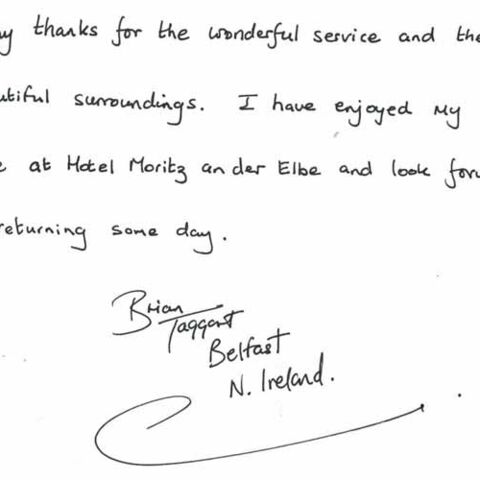 ny thanks for the wonderful service and the
utiful surroundings. I have enjoyed my
e at Hotel Moritz an der Elbe and look forw
returning some day.
Brian
Taggart
Belfast
N. Ireland.